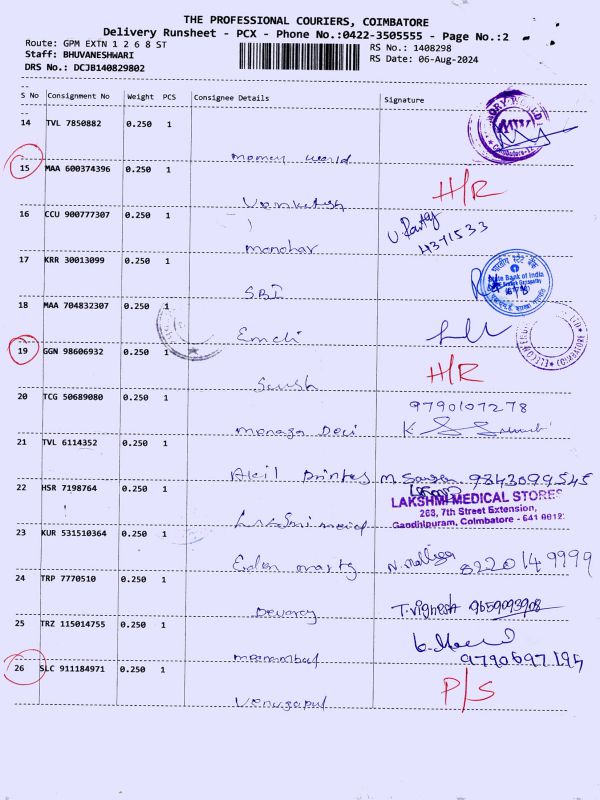 THE PROFESSIONAL COURIERS, COIMBATORE
Delivery Runsheet - PCX - Phone No.:0422-3505555 - Page No.:2
Route: GPM EXTN 1 2 6 8 ST
RS No.: 1408298
Staff: BHUVANESHWARI
RS Date: 06-Aug-2024
DRS No.: DCJB140829802
S No Consignment No Weight PCS Consignee Details Signature
14 TVL 7850882 0.250 1
money world
15 MAA 600374396 0.250 1
H/R
Venkatesh
16 CCU 900777307 0.250 1
4371533
manohar
17 KRR 30013099 0.250 1
भारतीय स्टेट बैंक
State Bank of India
SBI
18 MAA 704832307 0.250 1
COIMBATORE
19 GGN 98606932 0.250 1
H/R
20 TCG 50689080 0.250 1
9790107278
21 TVL 6114352 0.250 1
9843099545
22 HSR 7198764 0.250 1
LAKSHMI MEDICAL STORES
268, 7th Street Extension,
Gandhipuram, Coimbatore - 641 0012
23 KUR 531510364 0.250 1
8220149999
24 TRP 7770510 0.250 1
Devaraj
T.vignesh 9659093908
25 TRZ 115014755 0.250 1
9790697195
26 SLC 911184971 0.250 1
P/S
Venugopal